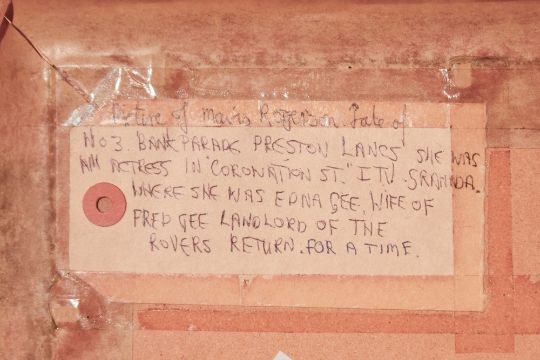 Picture of Mavis Rogerson Late of
NO 3. BANK PARADE PRESTON LANCS SHE WAS
AN ACTRESS IN "CORONATION ST." ITV. GRANADA.
WHERE SHE WAS EDNA GEE, WIFE OF
FRED GEE LANDLORD OF THE
ROVERS RETURN. FOR A TIME.